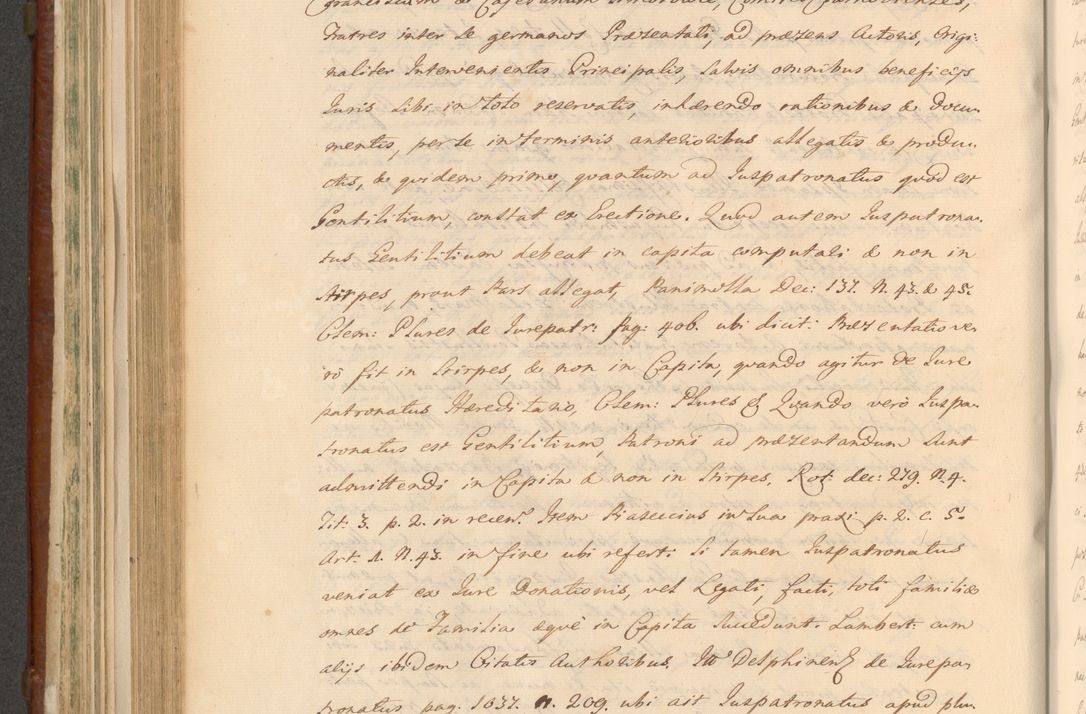 Franciscum & Cajetanum
Fratres inter se germanos Præsentati, ad præsens Actoris, Origi:
naliter Intervenientis Principalis, salvis omnibus beneficijs
Juris sibi in toto reservatis, inhærendo rationibus & docu-
mentis, per se in terminis anterioribus allegatis & produ-
ctis, & quidem primo, quantum ad Juspatronatus quod est
Gentilitium, constat ex Erectione. Quod autem Juspatrona-
tus Gentilitium debeat in capita computali & non in
Stirpes, prout Pars allegat, Panimolla Dec: 137. N. 43. & 45.
Clem: Plures de Jurepatr: pag: 406. ubi dicit: Præsentatio ve-
rò fit in Stirpes, & non in Capita, quando agitur de Jure
patronatus Hæreditario, Clem: Plures & Quando verò Juspa-
tronatus est Gentilitium, Patroni ad præzentandum sunt
admittendi in Capita & non in Stirpes, Rot: dec: 279. N. 4.
Tit: 3. p. 2. in recen: Item Piaseccius in sua praxi p. 2. c. 5.
Art. 1. N. 43. in fine ubi refert: Si tamen Juspatronatus
veniat ex Jure Donationis, vel Legati, facti, toti familiæ
omnes de Familia æquè in Capita succedunt. Lambert: cum
alijs ibidem Citatis Authoribus, Itt Delphinen de Jurepa
tronatus pag: 1037. n. 209. ubi ait Juspatronatus apud plu-